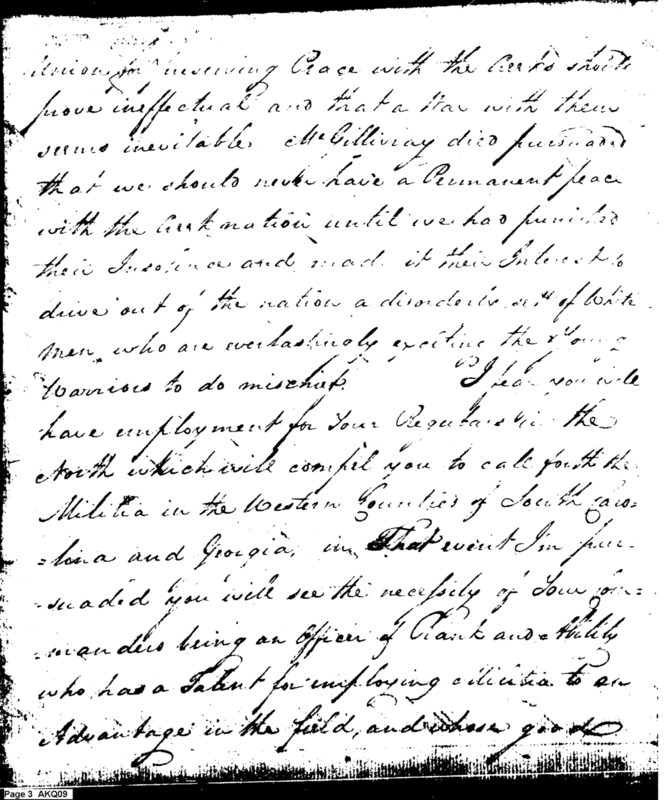 Union in insuring Peace with the Creeks should
prove ineffectual and that a War with them
seems inevitable. McGillivray died pursuaded
that we should never have a Permanent peace
with the Creek nation until we had punished
their Insolence and made it their Interest to
drive out of the nation a disorderly set of White
Men, who are everlastingly exciting the Young
Warriors to do mischief. I fear you will
have employment for Your Regulars in the
North which will compel you to call forth the
Militia in the Western Counties of South Caro=
=lina and Georgia, in That event I'm pur-
-suaded you will see the necessity of Your Com=
=manders being an Officer of Rank and Ability
who has a Talent for employing Militia to an
Advantage in the field, and whose good
Page 3 AKQ09